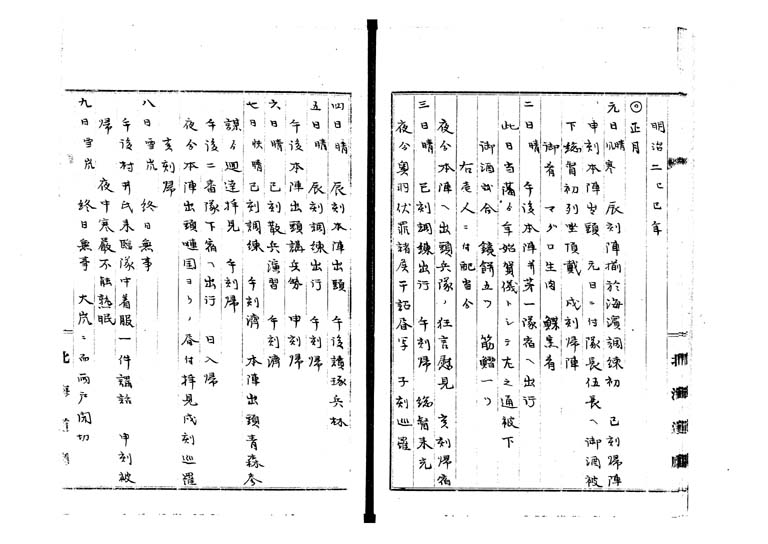 明治二己巳年
◎正月
元日 晴寒 辰刻陣揃於海濱調練初 己刻帰陣
申刻本陣出頭 元日ニ付隊長伍長ヘ御酒被
下総督初列坐頂戴 戌刻帰陣
御肴 マグロ生肉 鰈煮肴
二日 晴 午後本陣并第一隊宿ヘ出行
此日当藩ゟ年始賀儀トシテ左之通被下
御酒弐合 鏡餅五ツ 筋鰯一ツ
右壱人ニ付配当令
夜分本陣ヘ出頭兵隊ノ狂言慰見 亥刻帰宿
三日 晴 己刻調練出行 午刻帰 総督来光
夜分奥羽伏罪諸侯 詔昏写 子刻巡羅
四日 晴 辰刻本陣出頭 午後讀琢兵林
五日 晴 辰刻調練出行 午刻帰
午後本陣出頭講兵学 申刻帰
六日 晴 己刻散兵演習 午刻濟
七日 快晴 己刻調練 午刻濟 本陣出頭青森夲
謀ゟ廻達拝見 午刻帰
午後二番隊下宿ヘ出行 日入帰
夜分本陣出頭 国ヨリノ昏付拝見戌刻巡羅
亥刻帰
八日 雪嵐 終日無事
午後村井氏来臨隊中着服一件談話 申刻被
帰 夜中寒嚴不能熟眠
九日 雪嵐 終日無事 大嵐ニ而雨戸閉切
北海道廳
北海道廳